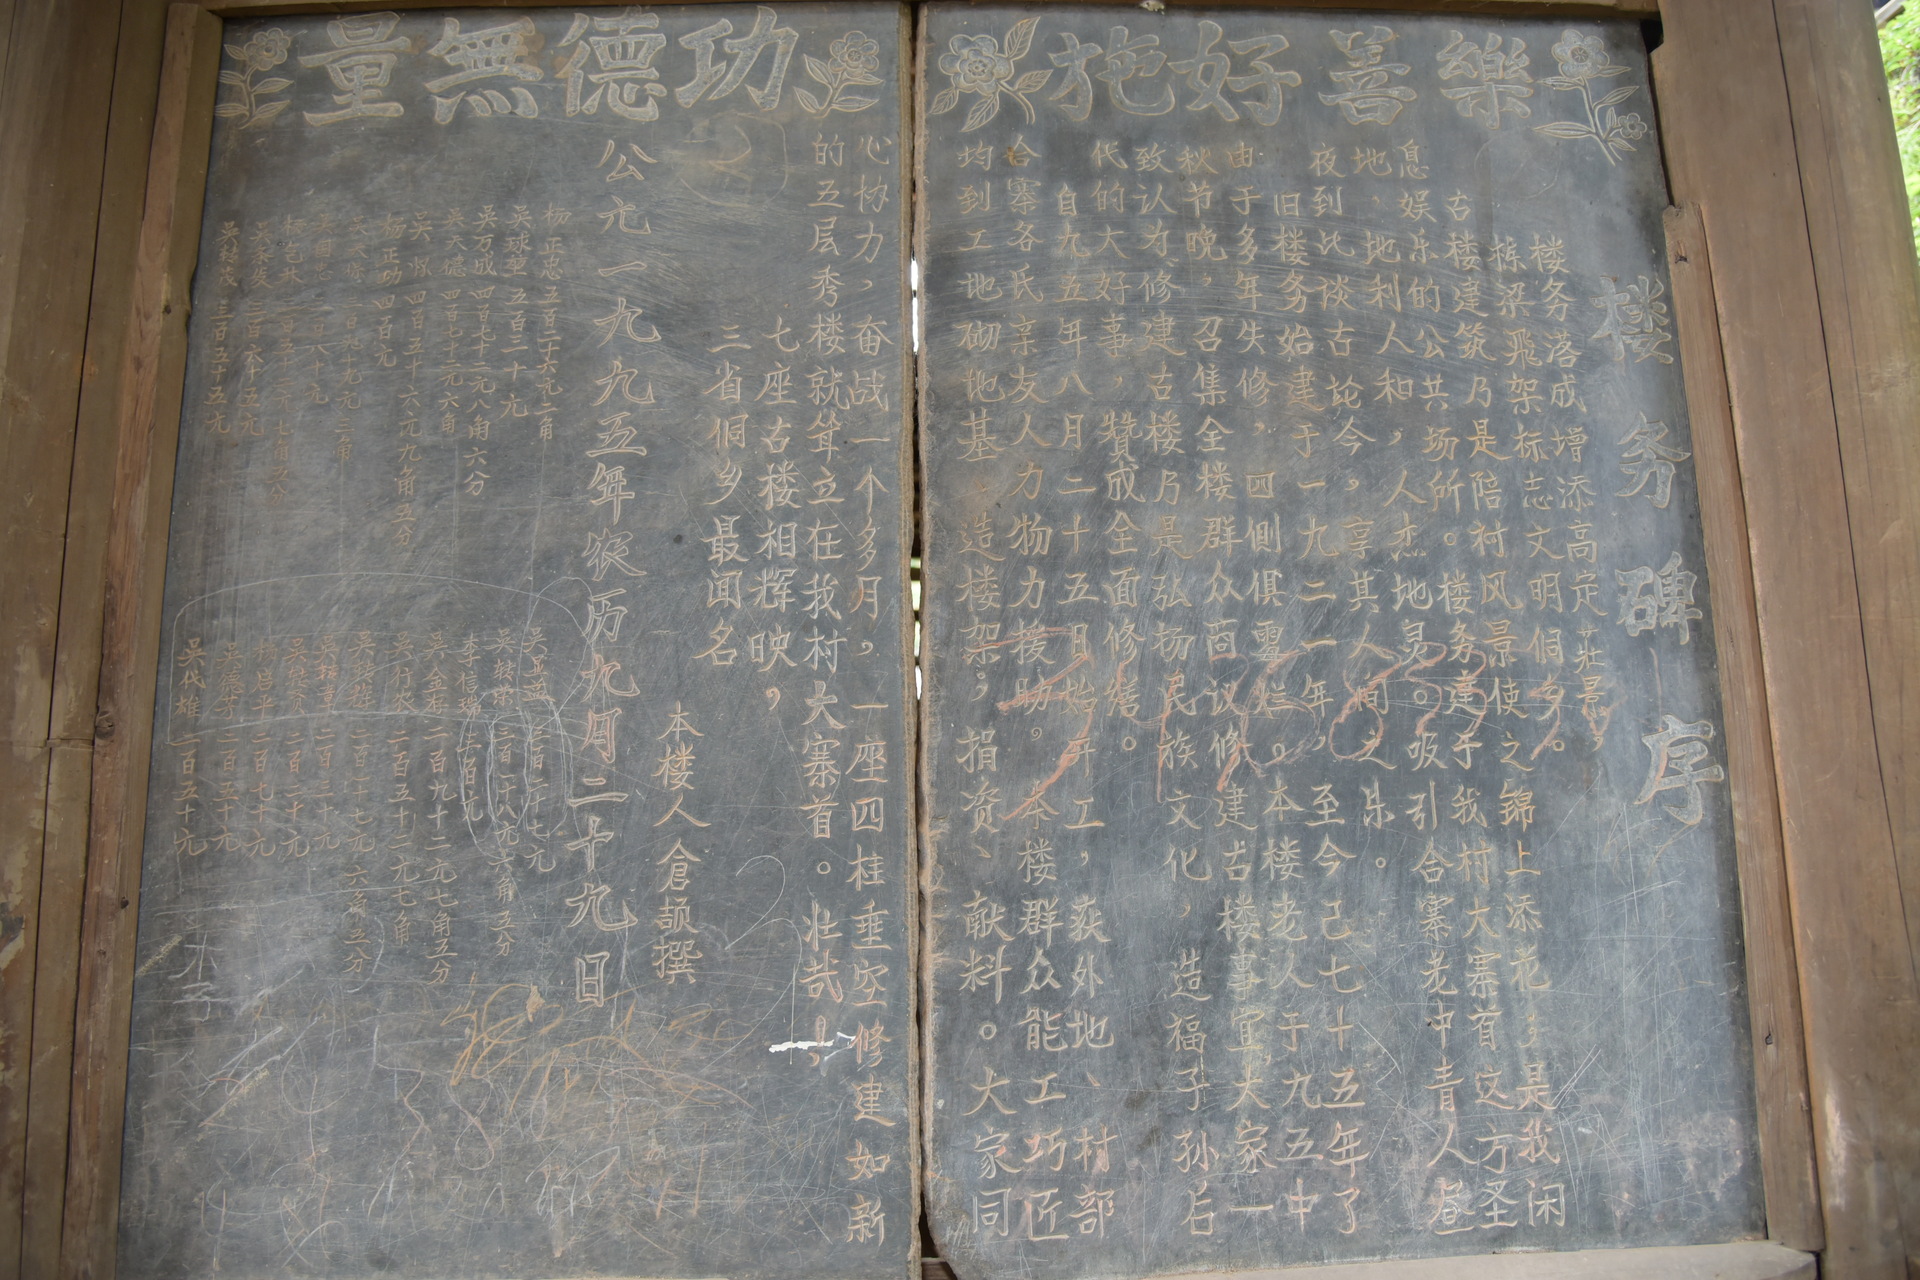 樂善好施
楼务碑序
楼务落成增添高定壮景，
栋梁飛架标志文明侗乡。
古楼建筑乃是陪村风景使之锦上添花，是我闲
息娱乐的公共场所。楼务建于我村大寨首这方圣
地，地利人和，人杰地灵。吸引合寨老中青人昼
夜到此谈古论今，享其人间之乐。
旧楼务始建于一九二一年，至今己七十五年了
由于多年失修，四侧俱霉烂。本楼老人于九五中
秋节晚，召集全楼群众商议修建古楼事宜，大家一
致认为修建古楼乃是弘扬民族文化，造福子孙后
代的大好事，赞成全面修缮。
自九五年八月二十五日始开工，获外地、村部
合寨各氏亲友人力物力援助。本楼群众能工巧匠
均到工地砌地基、造楼架，捐资、献料。大家同
功德無量
心协力，奋战一个多月，一座四柱垂空修建如新
的五层秀楼就耸立在我村大寨首。壮哉！
七座古楼相辉映，
三省侗乡最闻名
本楼人仓颉撰
公元一九九五年农历九月二十九日
杨正忠 五百二十六元二角
吴球堂 五百二十元
吴万成 四百七十二元八角六分
吴天德 四百七十二元六角
四百五十六元九角五分
杨正功 四百元
三百五十五元
三百二十八元六角五分
李信
吴金存 二百九十二元七角五分
二百五十二元七角
二百二十七元六角三分
二百三十元
二百二十元
二百七十元
吴德芳 二百五十元
吴代雄 二百五十元